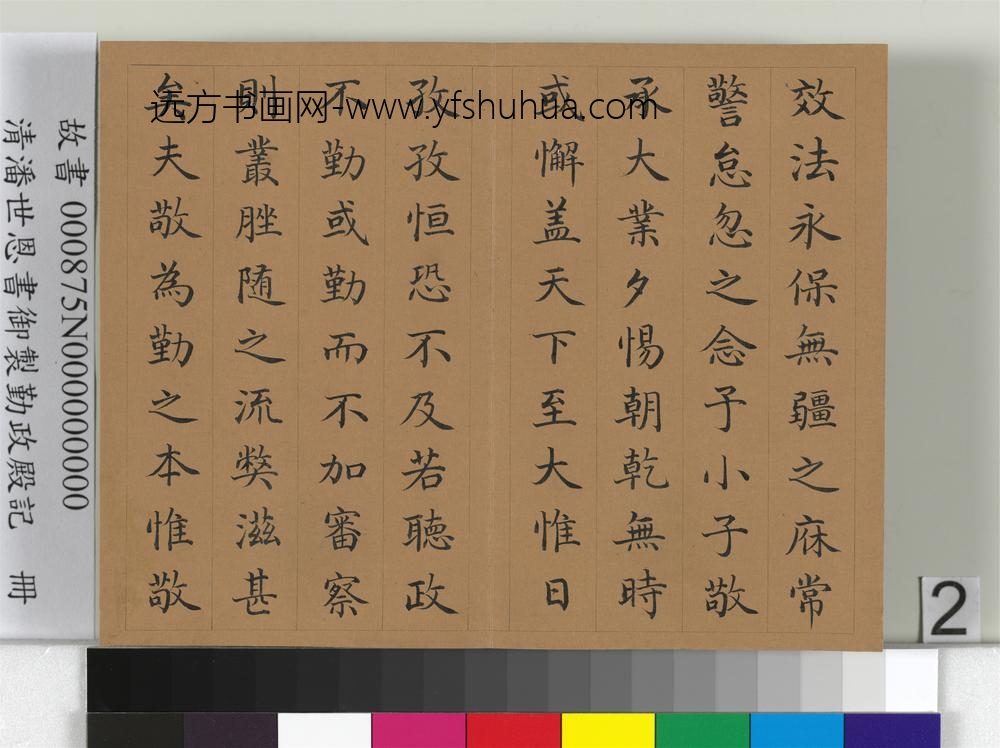 效法永保無疆之庥常
警怠忽之念予小子敬
承大業夕惕朝乾無時
或懈盖天下至大惟日
孜孜恒恐不及若聽政
不勤或勤而不加審察
則叢脞随之流獘滋甚
矣夫敬為勤之本惟敬
远方书画网-www.yfshuhua.com
故書 000875N000000000
清潘世恩書御製勤政殿記 冊
2